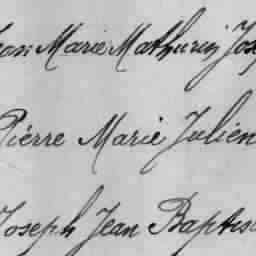 Jean Marie Mathurin Jos
Pierre Marie Julien
Joseph Jean Baptis